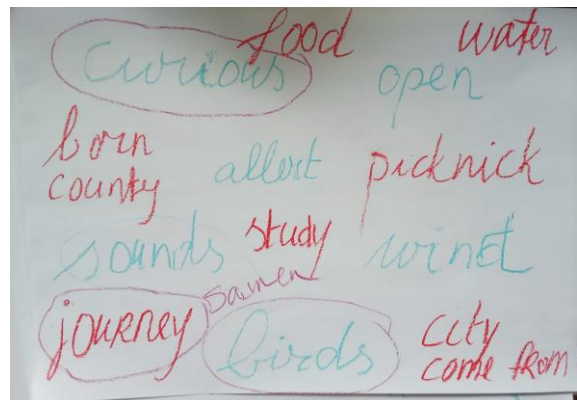 food water
curious open
born
county allert picknick
sounds study wind
samen
journey birds city
come from